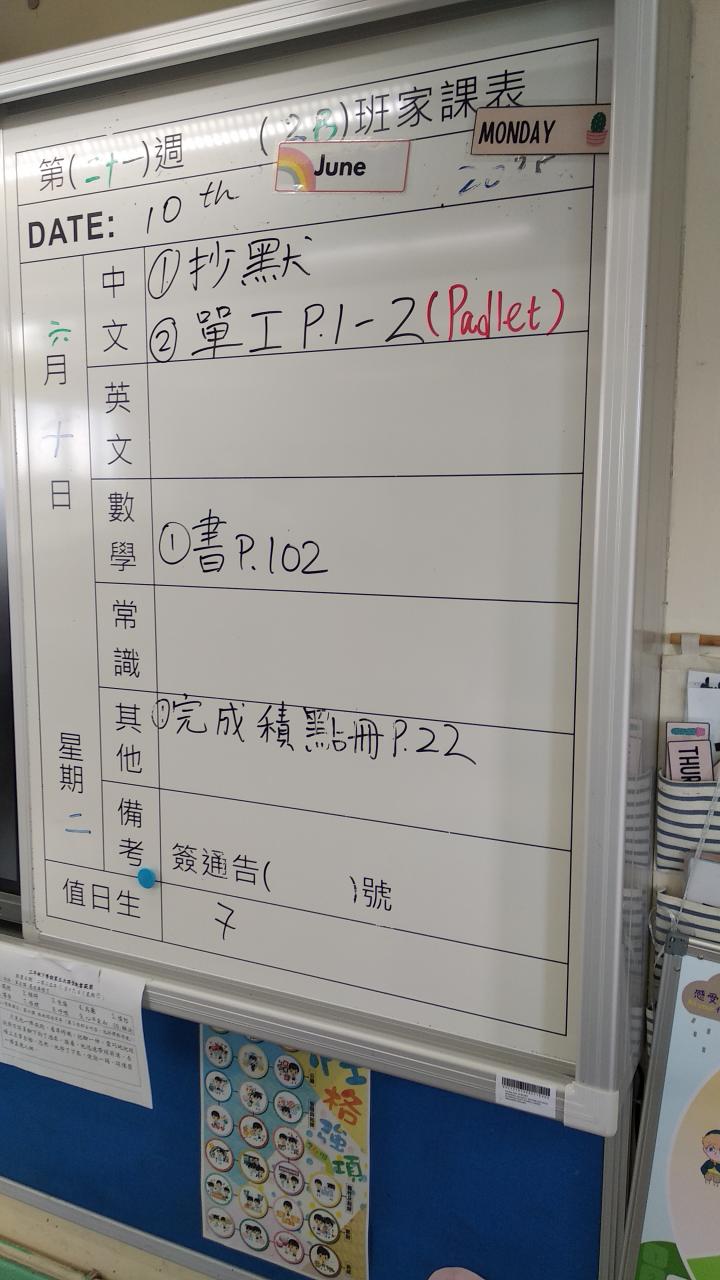 第(二十一)週 (2B)班家課表
MONDAY
June
DATE: 10 th
六月十日 星期二
中文
①抄默
②單工P.1-2(Padlet)
英文
數學
①書P.102
常識
其他
①完成積點冊P.22
備考
簽通告( )號
值日生
7
THUR
格
強
項
感受